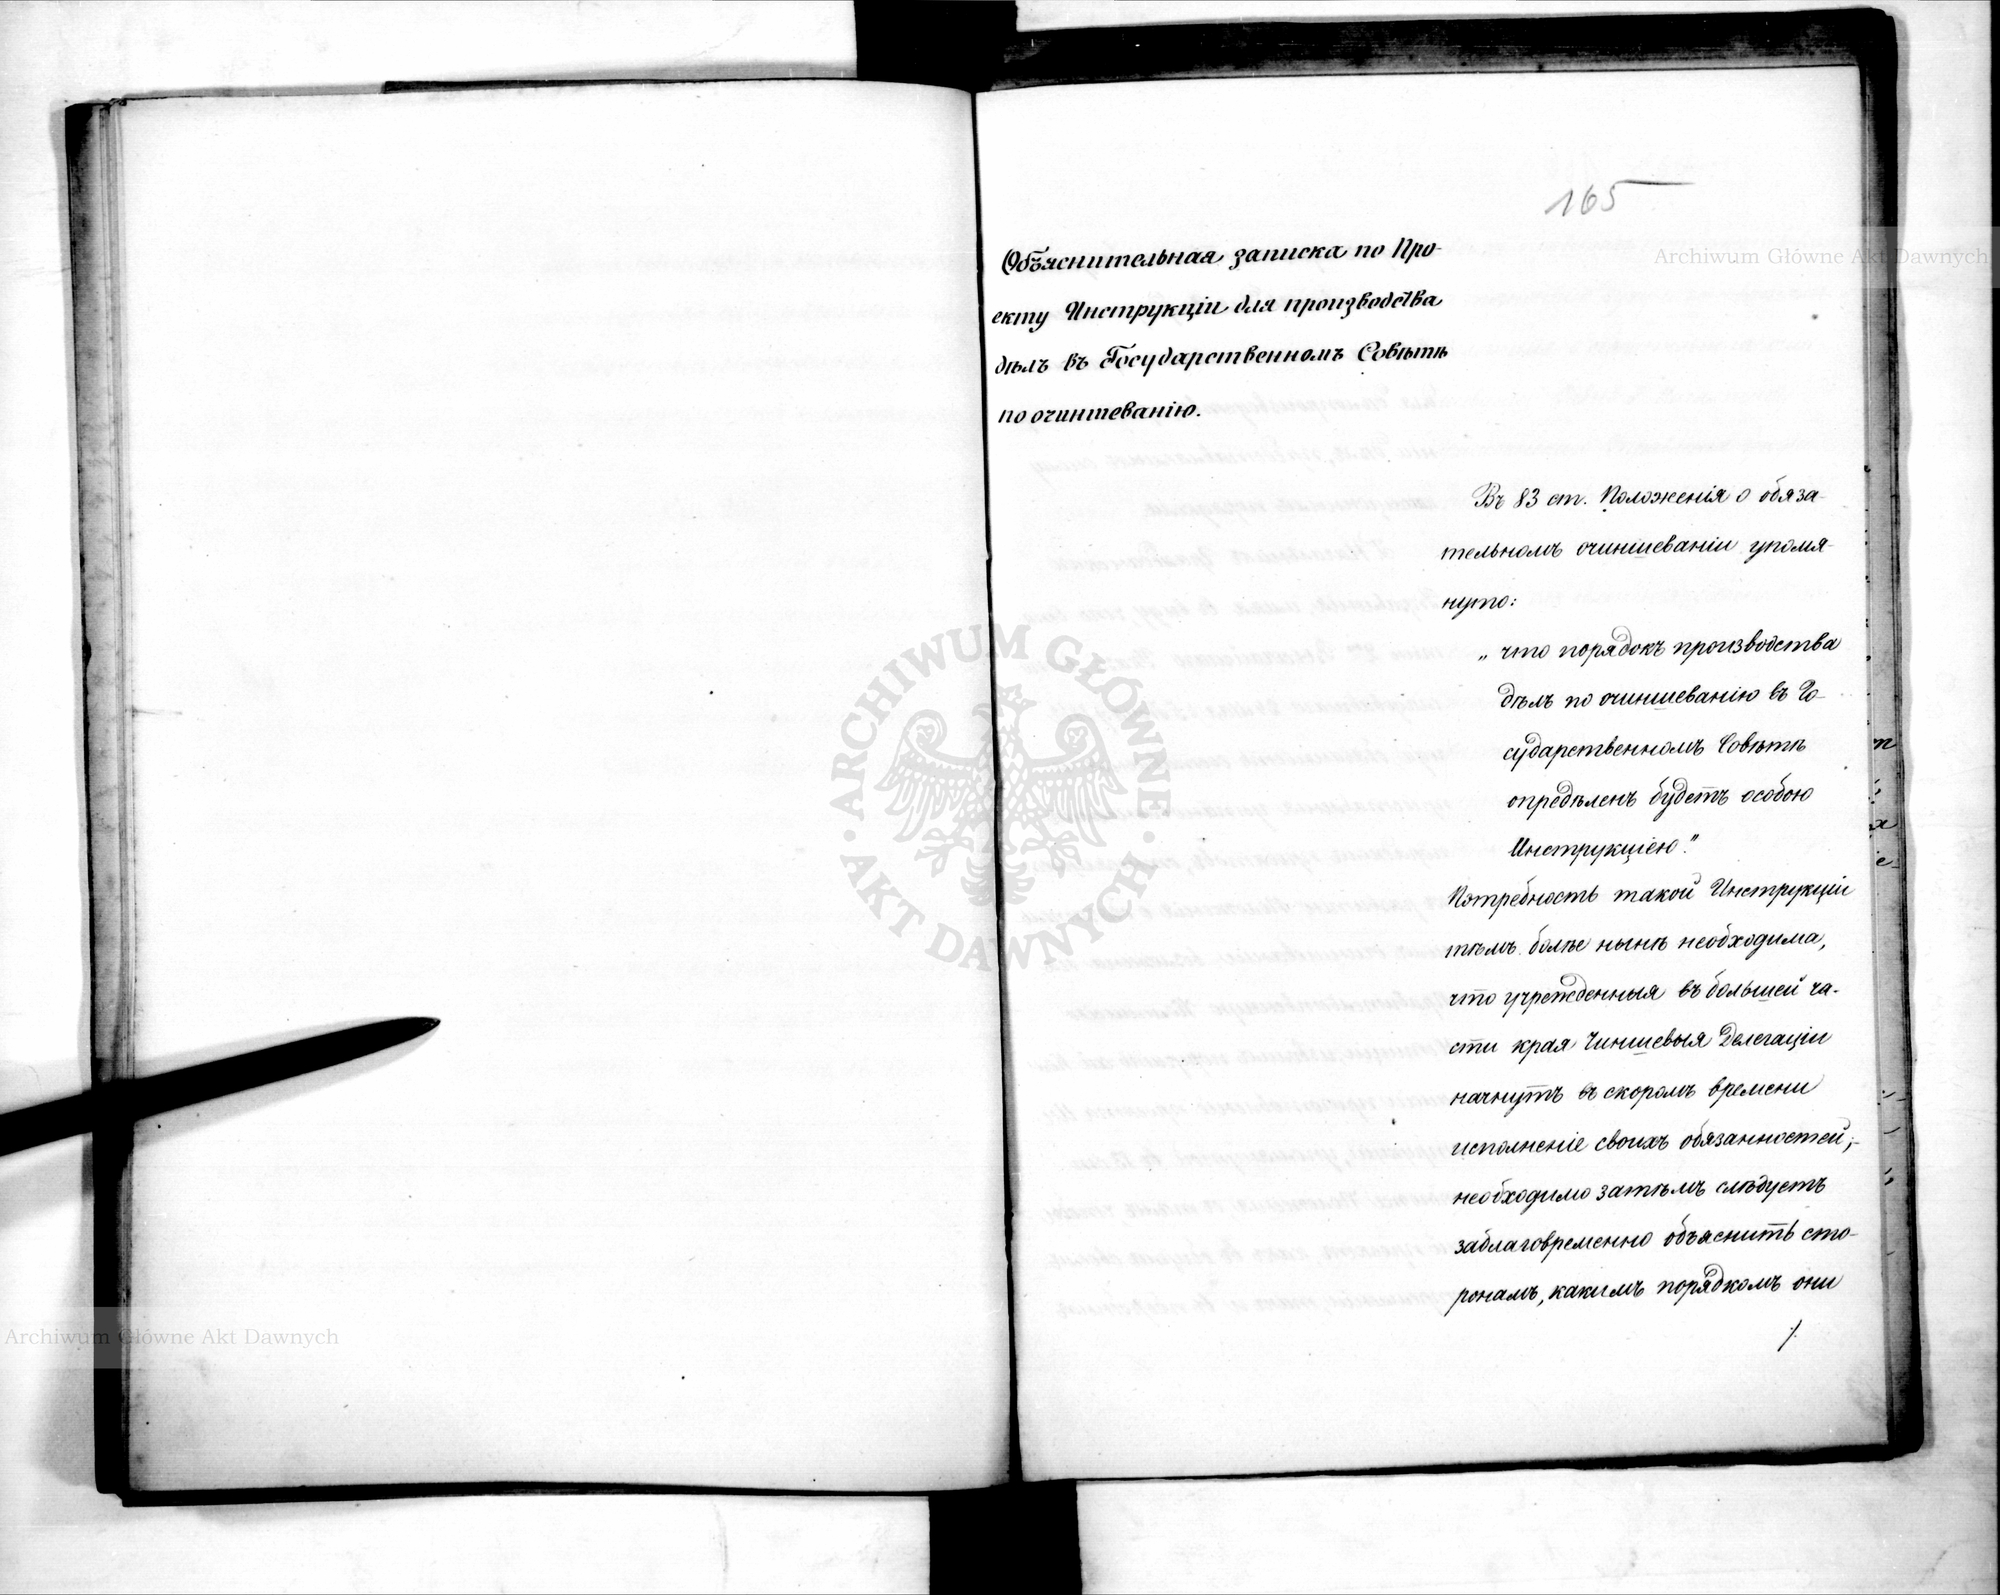 165
Объяснительная записка по Про-
екту Инструкціи для производства
дѣлъ въ Государственномъ Совѣтѣ
по очиншеванію.
Въ 83 ст. Положенія о обяза-
тельномъ очиншеваніи упомя-
нуто:
„что порядокъ производства
дѣлъ по очиншеванію въ Го-
сударственномъ Совѣтѣ
опредѣленъ будетъ особою
Инструкціею."
Потребность такой Инструкціи
тѣмъ болѣе нынѣ необходима,
что учрежденныя въ большей ча-
сти края Чиншевыя Делегаціи
начнутъ въ скоромъ времени
исполненіе своихъ обязанностей;-
необходимо затѣмъ слѣдуетъ
заблаговременно объяснить сто-
ронамъ, какимъ порядкомъ они
./.
Archiwum Główne Akt Dawnych
ARCHIWUM GŁÓWNE
AKT DAWNYCH
Archiwum Główne Akt Dawnych